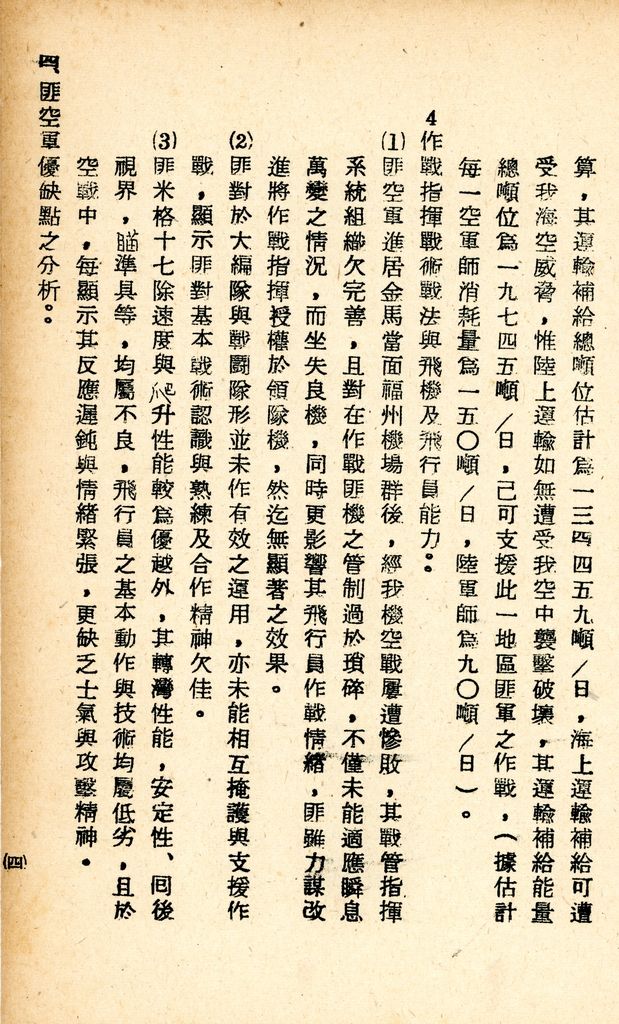 算，其運輸補給總噸位估計為一三四四五九噸／日，海上運輸補給可遭
受我海空威脅，惟陸上運輸如無遭受我空中襲擊破壞，其運輸補給能量
總噸位為一九七四五噸／日，己可支援此一地區匪軍之作戰，（據估計
每一空軍師消耗量為一五〇噸／日，陸軍師為九〇噸／日）。
4作戰指揮戰術戰法與飛機及飛行員能力。。
(1)匪空軍進居金馬當面福州機場群後，經我機空戰屢遭慘敗，其戰管指揮
系統組織欠完善，且對在作戰匪機之管制過於瑣碎，不僅未能適應瞬息
萬變之情況，而坐失良機，同時更影響其飛行員作戰情緒，匪雖力謀改
進將作戰指揮授權於領隊機，然迄無顯著之效果。
(2)匪對於大編隊與戰鬪隊形並未作有效之運用，亦未能相互掩護與支援作
戰，顯示匪對基本戰術認識與熟練及合作精神欠佳。
(3)匪米格十七除速度與爬升性能較為優越外，其轉灣性能，安定性、回後
視界，瞄準具等，均屬不良，飛行員之基本動作與技術均屬低劣，且於
空戰中，每顯示其反應遲鈍與情緒緊張，更缺乏士氣與攻擊精神。
四、匪空軍優缺點之分析。。
(四)